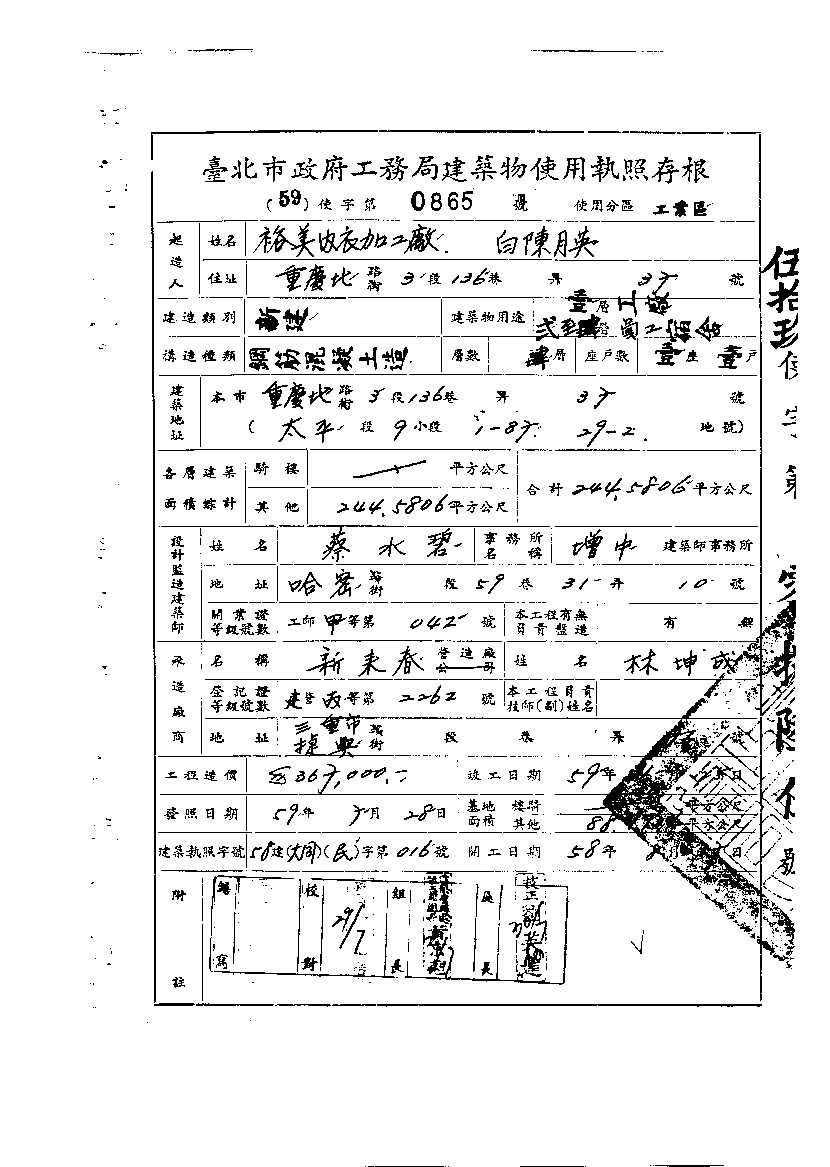 臺北市政府工務局建築物使用執照存根
(59)使字第 0865 號 使用分區 工業區
起造人 姓名 裕美內衣加工廠 白陳月英
住址 重慶北路街 3段136巷 弄 37號
建造類別 新建 建築物用途 壹層工廠 貳至肆層員工宿舍
構造種類 鋼筋混凝土造 層數 肆層 座戶數 壹座壹戶
建築地址 本市 重慶北路街 3段136巷 弄 37號
(太平段 9小段 1-87 29-2 地號)
各層建築面積綜計 騎樓 平方公尺 合計 244.5806平方公尺
其他 244.5806平方公尺
設計監造建築師 姓名 蔡水碧 事務所名稱 增中 建築師事務所
地址 哈密街 段 59巷 31弄 10號
開業證等級號數 工師 甲等第 042 號 本工程有無負責監造 有 無
承造廠商 名稱 新來春 營造廠公司 姓名 林坤成
登記證等級號數 建營丙等第 2262 號 本工程負責技師(副)姓名
地址 三重市 街 段 巷 弄 號
工程造價 367,000.- 竣工日期 59年 日
發照日期 59年 7月 28日 基地面積 騎樓 平方公尺
其他 88. 平方公尺
建築執照字號 58建(大同)(民)字第016號 開工日期 58年 8 日
附註
繕寫 校對 29/7 組長 區長 技正
伍拾玖使字第
號